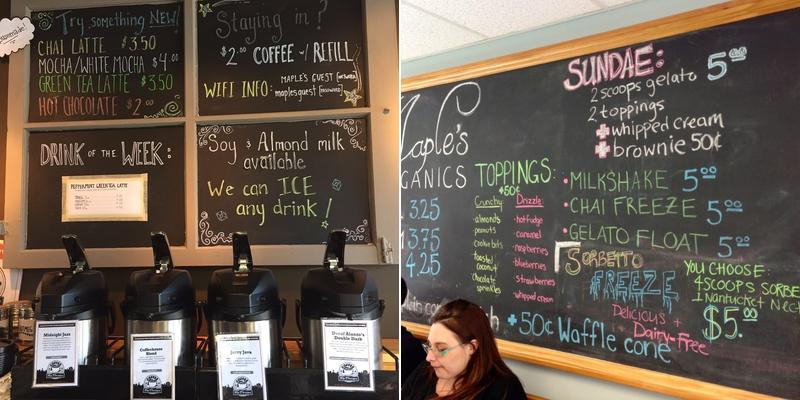 Try something NEW!
CHAI LATTE $3.50
MOCHA/WHITE MOCHA $4.00
GREEN TEA LATTE $3.50
HOT CHOCOLATE $2.00
Staying in?
$2.00 COFFEE w/ REFILL
WIFI INFO: MAPLE'S GUEST (network)
maplesguest (password)
DRINK OF THE WEEK:
PEPPERMINT GREEN TEA LATTE
Soy & Almond milk
available
We can ICE
any drink!
Midnight Jazz
Coffeehouse
Blend
Jerry Java
Decaf Alonzo's
Double Dark
Maple's
GANICS
3.25
3.75
4.25
SUNDAE: 5.00
2 scoops gelato
2 toppings
+ whipped cream
+ brownie 50¢
TOPPINGS:
+50¢
Crunchy:
almonds
peanuts
cookie bits
toasted
coconut
chocolate
sprinkles
Drizzle:
• hot fudge
• caramel
• raspberries
• blueberries
• strawberries
• whipped cream
• MILKSHAKE 5.00
• CHAI FREEZE 5.00
• GELATO FLOAT 5.00
SORBETTO
FREEZE
Delicious +
Dairy-Free
YOU CHOOSE:
4 SCOOPS SORBE
1 Nantucket Nect
$5.00
+50¢ Waffle cone